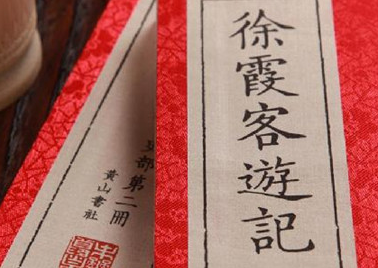 徐霞客遊記
部第二冊
黃山書社